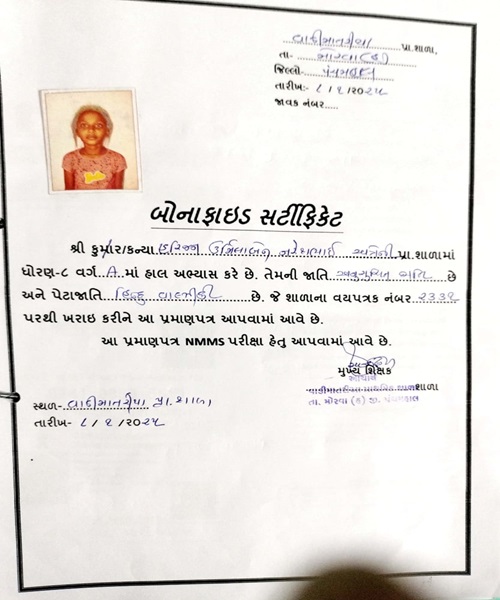 વાડીમાતરીયા પ્રા.શાળા,
તા- મોરવા(હ)
જિલ્લો- પંચમહાલ
તારીખ:- ૮/૧/૨૦૨૫
જાવક નંબર.....
બોનાફાઇડ સર્ટીફિકેટ
શ્રી કુમાર/કન્યા હરિજન ઉર્મિલાબેન નરેશભાઈ અત્રેની પ્રા.શાળામાં
ધોરણ-૮ વર્ગ A માં હાલ અભ્યાસ કરે છે. તેમની જાતિ અનુસૂચિત જાતિ છે
અને પેટાજાતિ હિન્દુ વાલ્મીકી છે. જે શાળાના વયપત્રક નંબર ૨૩૩૨
પરથી ખરાઇ કરીને આ પ્રમાણપત્ર આપવામાં આવે છે.
આ પ્રમાણપત્ર NMMS પરીક્ષા હેતુ આપવામાં આવે છે.
મુખ્ય શિક્ષક
આચાર્ય
શાળા
તા. મોરવા (હ) જી. પંચમહાલ
સ્થળ- વાડીમાતરીયા પ્રા.શાળા
તારીખ- ૮/૧/૨૦૨૫